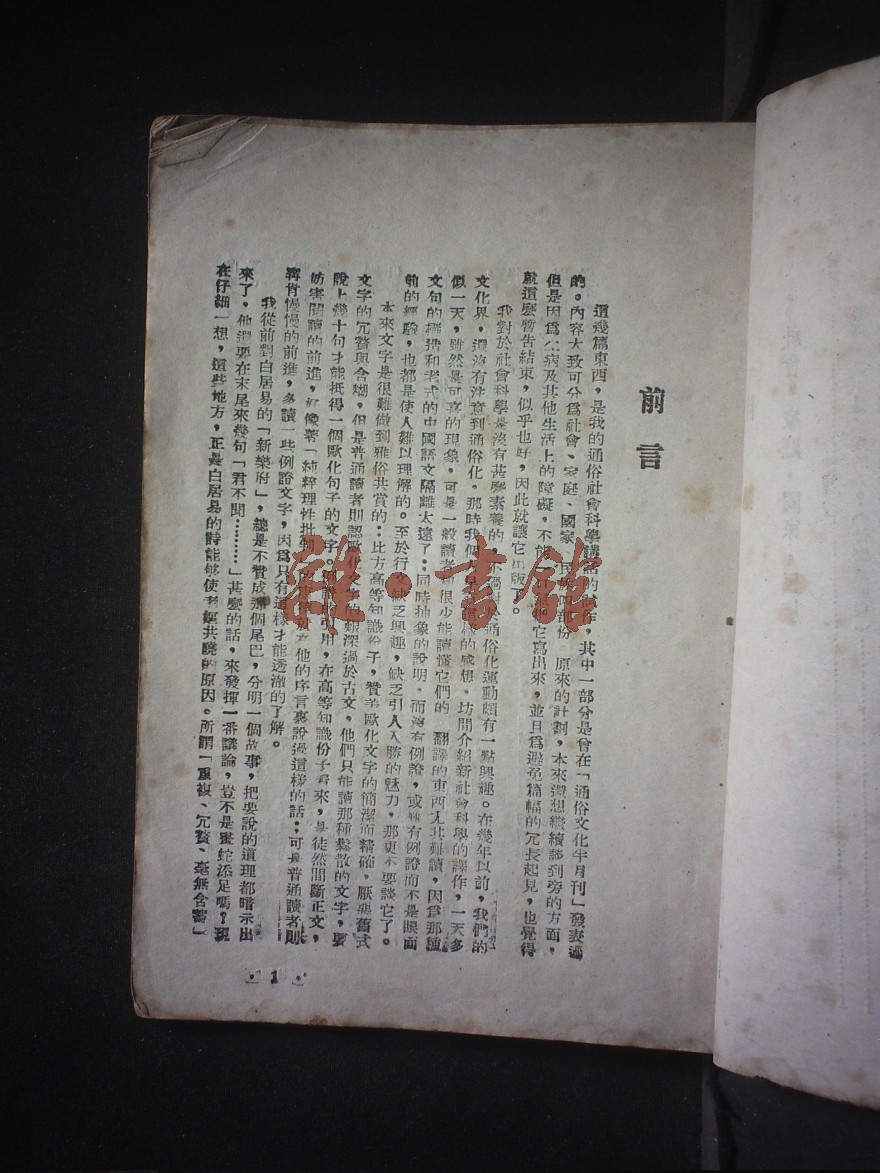 前言
這幾篇東西，是我的通俗社會科學講話的 作，其中一部分是曾在「通俗文化半月刊」發表過
的。內容大致可分爲社會、家庭、國家、民族四部份 原來的計劃，本來還想繼續談到旁的方面，
但是因爲 病及其他生活上的障礙，不能 它寫出來，並且爲避免篇幅的冗長起見，也覺得
就這麽暫告結束，似乎也好，因此就讓它出版了。
我對於社會科學是沒有甚麽素養的 不過對於通俗化運動頗有一點興趣。在幾年以前，我們的
文化界，還沒有注意到通俗化，那時我個 的感想，坊間介紹新社會科學的譯作，一天多
似一天，雖然是可喜的現象，可是一般讀者却很少能讀懂它們的 翻譯的東西尤其難讀，因爲那種
文句的構造和老式的中國語文隔離太遠了：同時抽象的說明，而沒有例證，或雖有例證而不是眼面
前的經驗，也都是使人難以理解的。至於行文缺乏興趣，缺乏引人入勝的魅力，那更不要談它了。
本來文字是很難做到雅俗共賞的：比方高等知識份子，贊美歐化文字的簡潔而精確，厭棄舊式
文字的冗贅與含糊，但是普通讀者則認歐化文字的艱深過於古文，他們只能讀那種鬆散的文字，要
說上幾十句才能抵得一個歐化句子的文字。例證的引用，在高等知識份子看來，是徒然間斷正文，
妨害閱讀的前進，好像著「純粹理性批判」的 他的序言裏說過這樣的話；可是普通讀者則
寧肯慢慢的前進，多讀一些例證文字，因爲只有這樣才能透澈的了解。
我從前對白居易的「新樂府」，總是不贊成那個尾巴，分明一個故事，把要說的道理都暗示出
來了，他還要在末尾來幾句「君不聞………」甚麽的話，來發揮一番議論，豈不是畫蛇添足嗎？現
在仔細一想，這些地方，正是白居易的詩能够使老嫗共曉的原因。所謂「重複、冗贅、毫無含蓄」
·1·
雜·書館